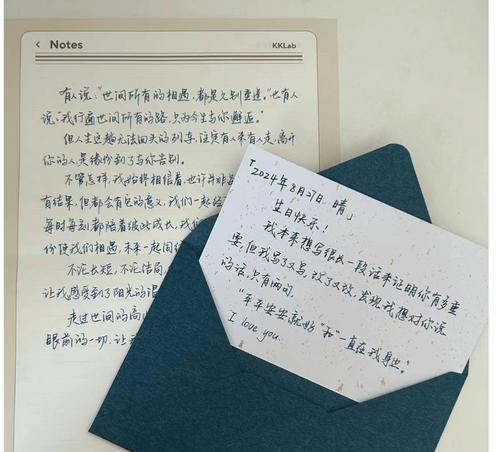 < Notes
KKLab
有人说:“世间所有的相遇,都是久别重逢。”也有人
说,“我行遍世间所有的路,只为今生与你邂逅。”
但人生这趟无法回头的列车,注定有人来有人走,离开
你的人,是缘份到了与你告别。
不管怎样,我始终相信着,也许并非
有结果,但都会有它的意义,我们一起经
每时每刻都陪着彼此成长,我们
份使我们相遇,未来一起
不论长短,不论结局,
让我感受到了阳光的温
走过世间的
眼前的一切,让
「2024年8月27日 晴」
生日快乐!
我本来想写很长一段话来证明你有多重
要,但我写了又写,改了又改,发现我想对你说
的话,只有两句,
“平平安安就好”和“一直在我身边”。
I love you.